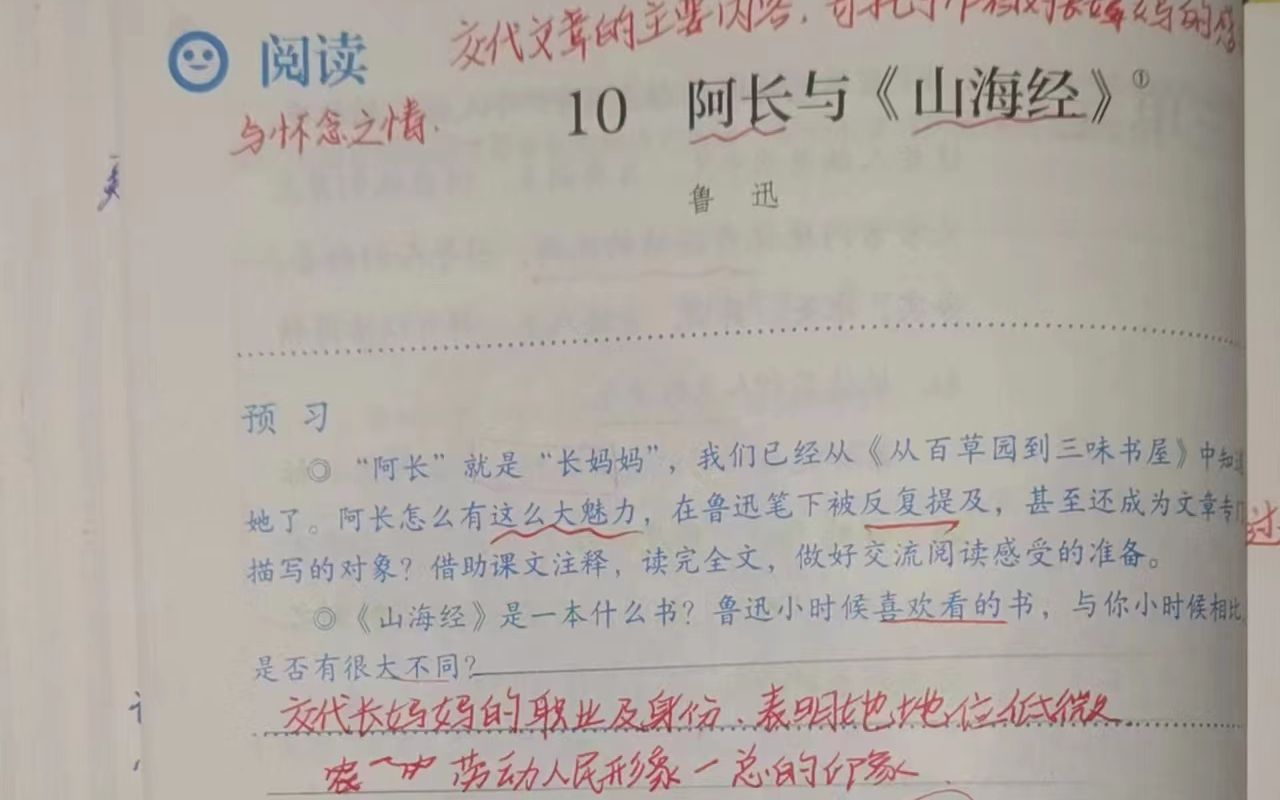 交代文章的主要内容，寄托了作者对长妈妈的感
阅读
与怀念之情．
10 阿长与《山海经》①
鲁 迅
预 习
◎ “阿长”就是“长妈妈”，我们已经从《从百草园到三味书屋》中知道
她了。阿长怎么有这么大魅力，在鲁迅笔下被反复提及，甚至还成为文章专门
描写的对象？借助课文注释，读完全文，做好交流阅读感受的准备。
◎《山海经》是一本什么书？鲁迅小时候喜欢看的书，与你小时候相比，
是否有很大不同？
交代长妈妈的职业及身份、表明她地位低微
劳动人民形象一总的印象